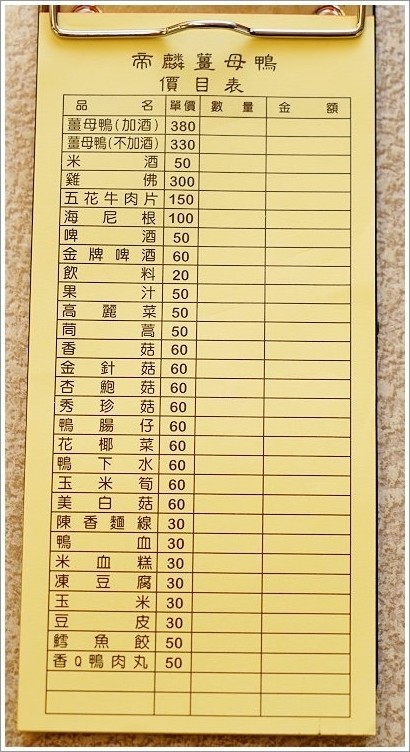 帝麟薑母鴨
價目表
品名 單價 數量 金額
薑母鴨(加酒) 380
薑母鴨(不加酒) 330
米酒 50
雞佛 300
五花牛肉片 150
海尼根 100
啤酒 50
金牌啤酒 60
飲料 20
果汁 50
高麗菜 50
茼蒿 50
香菇 60
金針菇 60
杏鮑菇 60
秀珍菇 60
鴨腸仔 60
花椰菜 60
鴨下水 60
玉米筍 60
美白菇 60
陳香麵線 30
鴨血 30
米血糕 30
凍豆腐 30
玉米 30
豆皮 30
鱈魚餃 50
香Q鴨肉丸 50